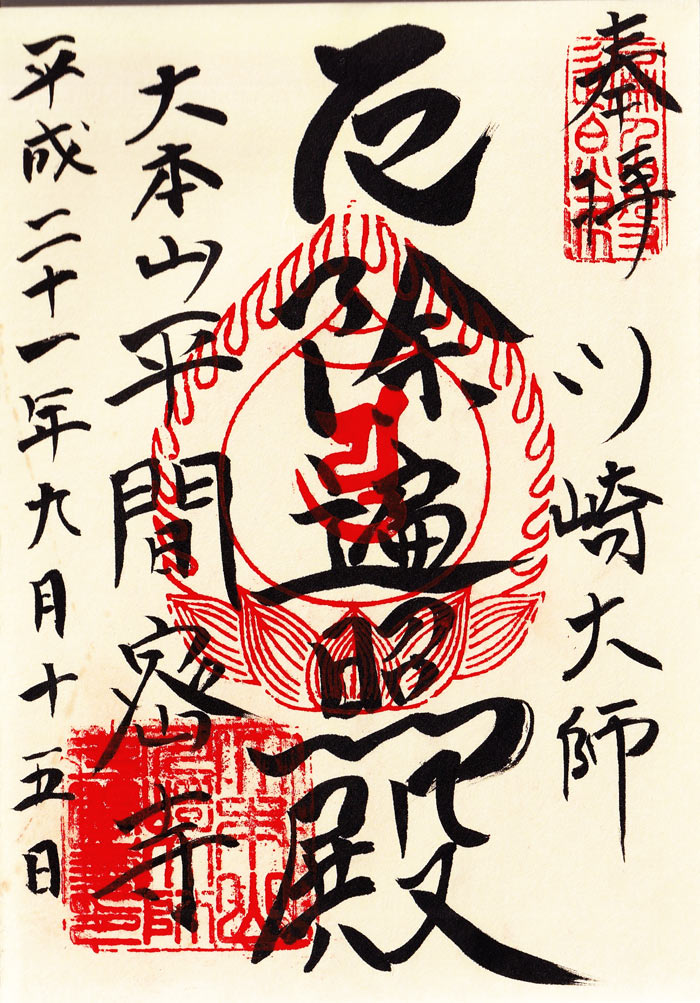 奉拝
川崎大師
厄除遍昭殿
大本山平間密寺
平成二十一年九月十五日